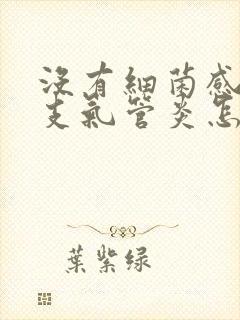 沒有細菌感
支氣管炎怎
葉紫绿